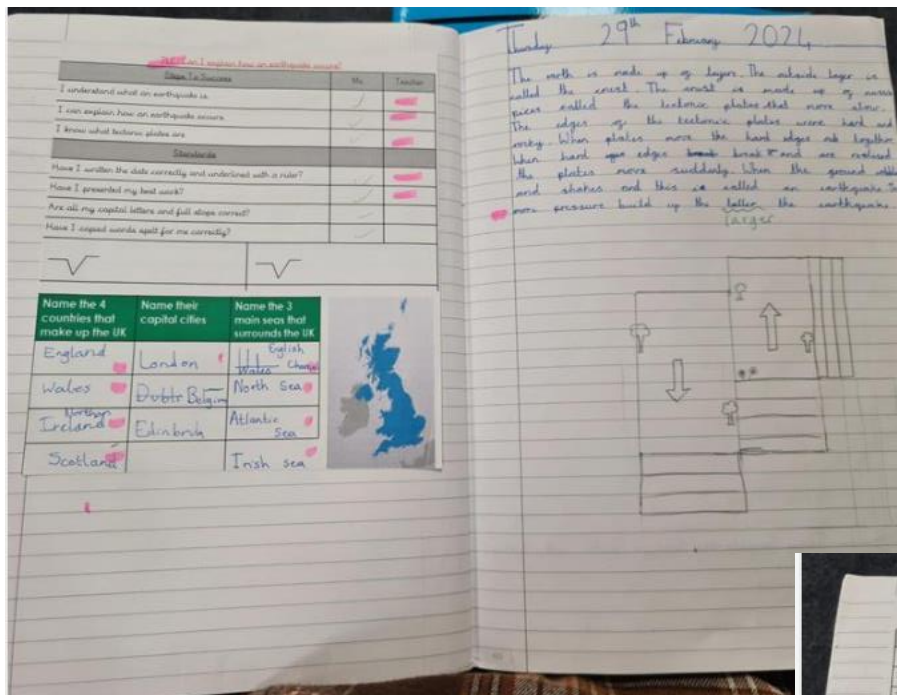 can I explain how an earthquake occurs?
Steps To Success
Me
Teacher
I understand what an earthquake is
I can explain how an earthquake occurs
I know what tectonic plates are
Standards
Have I written the date correctly and underlined with a ruler?
Have I presented my best work?
Are all my capital letters and full stops correct?
Have I copied words spelt for me correctly?
Name the 4
countries that
make up the UK
Name their
capital cities
Name the 3
main seas that
surrounds the UK
England
London
Wales
English
Channel
Wales
Dubtr Belgim
North Sea
Northern
Ireland
Edinbruh
Atlantic
Sea
Scotland
Irish sea
Thursday 29th February 2024
The earth is made up of layers. The outside layer is
called the crust. The crust is made up of
pices called the tectonic plates that move slow.
The edges of the tectonic plates were hard and
rocky. When plates move the hard edges rub together
When hard edges break and are realsed
the plates move suddenly. When the ground
and shakes and this is called an earthquake.
more pressure build up the the earthquake
larger